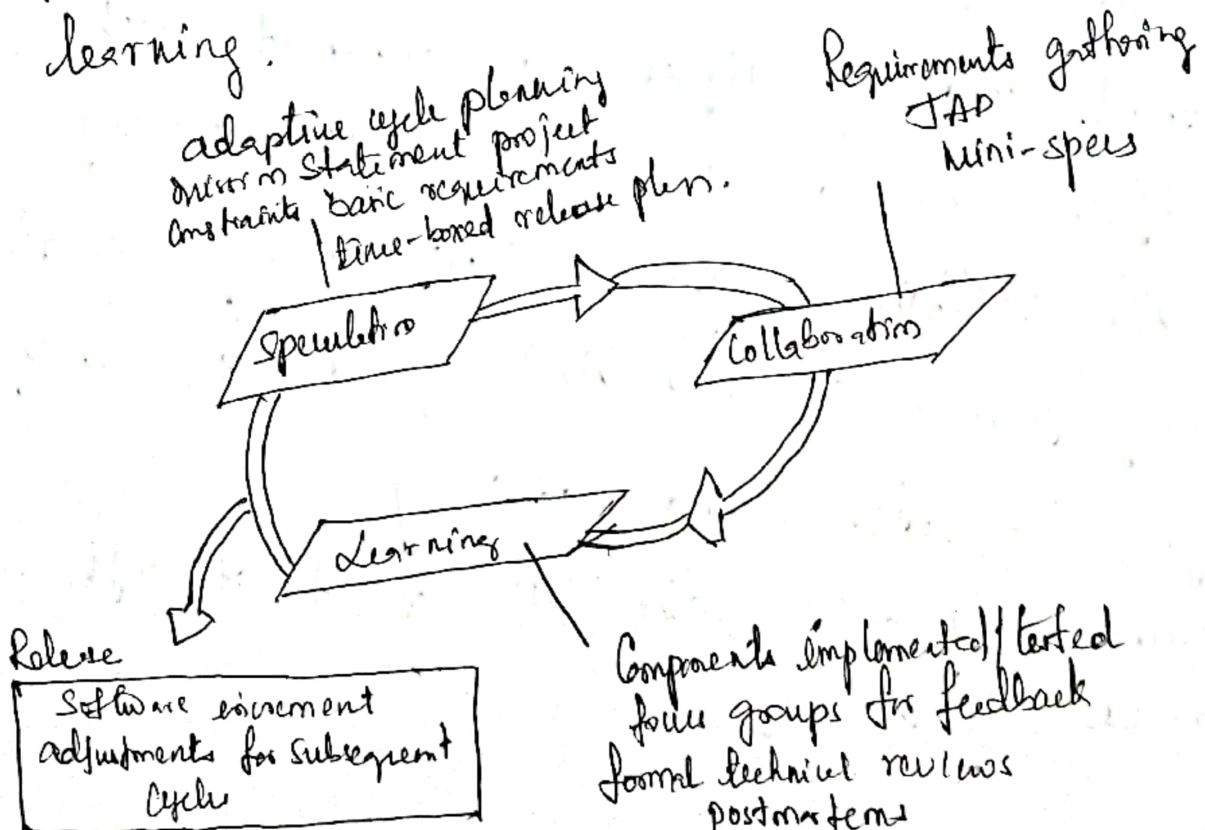 learning.
adaptive cycle planning
mission statement project
constraints basic requirements
time-boxed release plan.
Requirements gathering
JAD
mini-specs
Speculation
Collaboration
Learning
Release
Software increment
adjustments for subsequent
cycle
Components implemented/tested
focus groups for feedback
formal technical reviews
postmortems